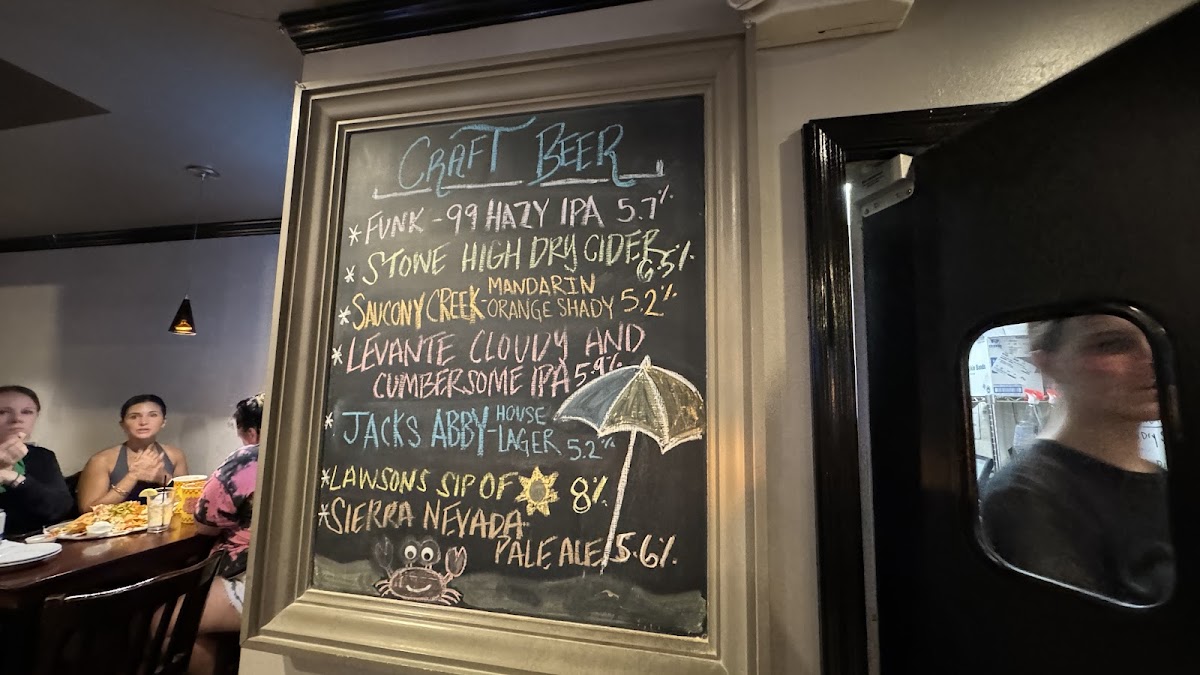 CRAFT BEER
* FUNK - 99 HAZY IPA 5.7%
* STONE HIGH DRY CIDER 6.5%
* SAUCONY CREEK - MANDARIN ORANGE SHADY 5.2%
* LEVANTE CLOUDY AND
CUMBERSOME IPA 5.9%
* JACKS ABBY - HOUSE LAGER 5.2%
* LAWSONS SIP OF 8%
* SIERRA NEVADA
PALE ALE 5.6%